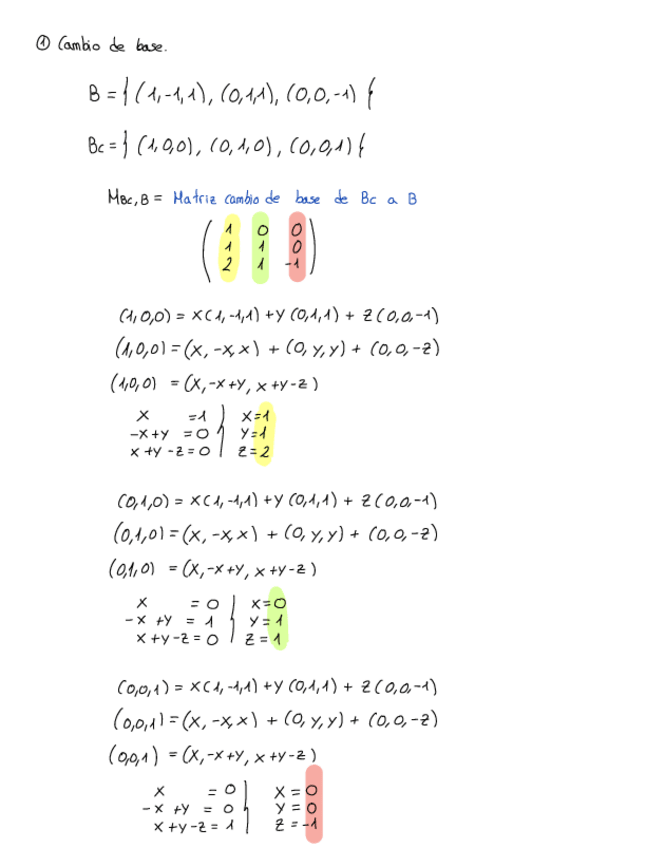 ① Cambio de base.
B = { (1,-1,1), (0,1,1), (0,0,-1) {
Bc = } (1,0,0), (0,1,0), (0,0,1) {
MBc,B = Matriz cambio de base de Bc a B
1 0 0
1 1 0
2 1 -1
(1,0,0) = x(1,-1,1) + y(0,1,1) + z(0,0,-1)
(1,0,0) = (x,-x,x) + (0,y,y) + (0,0,-z)
(1,0,0) = (x,-x+y, x+y-z)
x =1 } x=1
-x+y =0 } y=1
x+y-z=0 } z=2
(0,1,0) = x(1,-1,1) + y(0,1,1) + z(0,0,-1)
(0,1,0) = (x,-x,x) + (0,y,y) + (0,0,-z)
(0,1,0) = (x,-x+y, x+y-z)
x = 0 } x=0
-x +y = 1 } y=1
x+y-z=0 } z=1
(0,0,1) = x(1,-1,1) + y(0,1,1) + z(0,0,-1)
(0,0,1) = (x,-x,x) + (0,y,y) + (0,0,-z)
(0,0,1) = (x,-x+y, x+y-z)
x = 0 } x = 0
-x +y = 0 } y = 0
x+y-z = 1 } z = -1